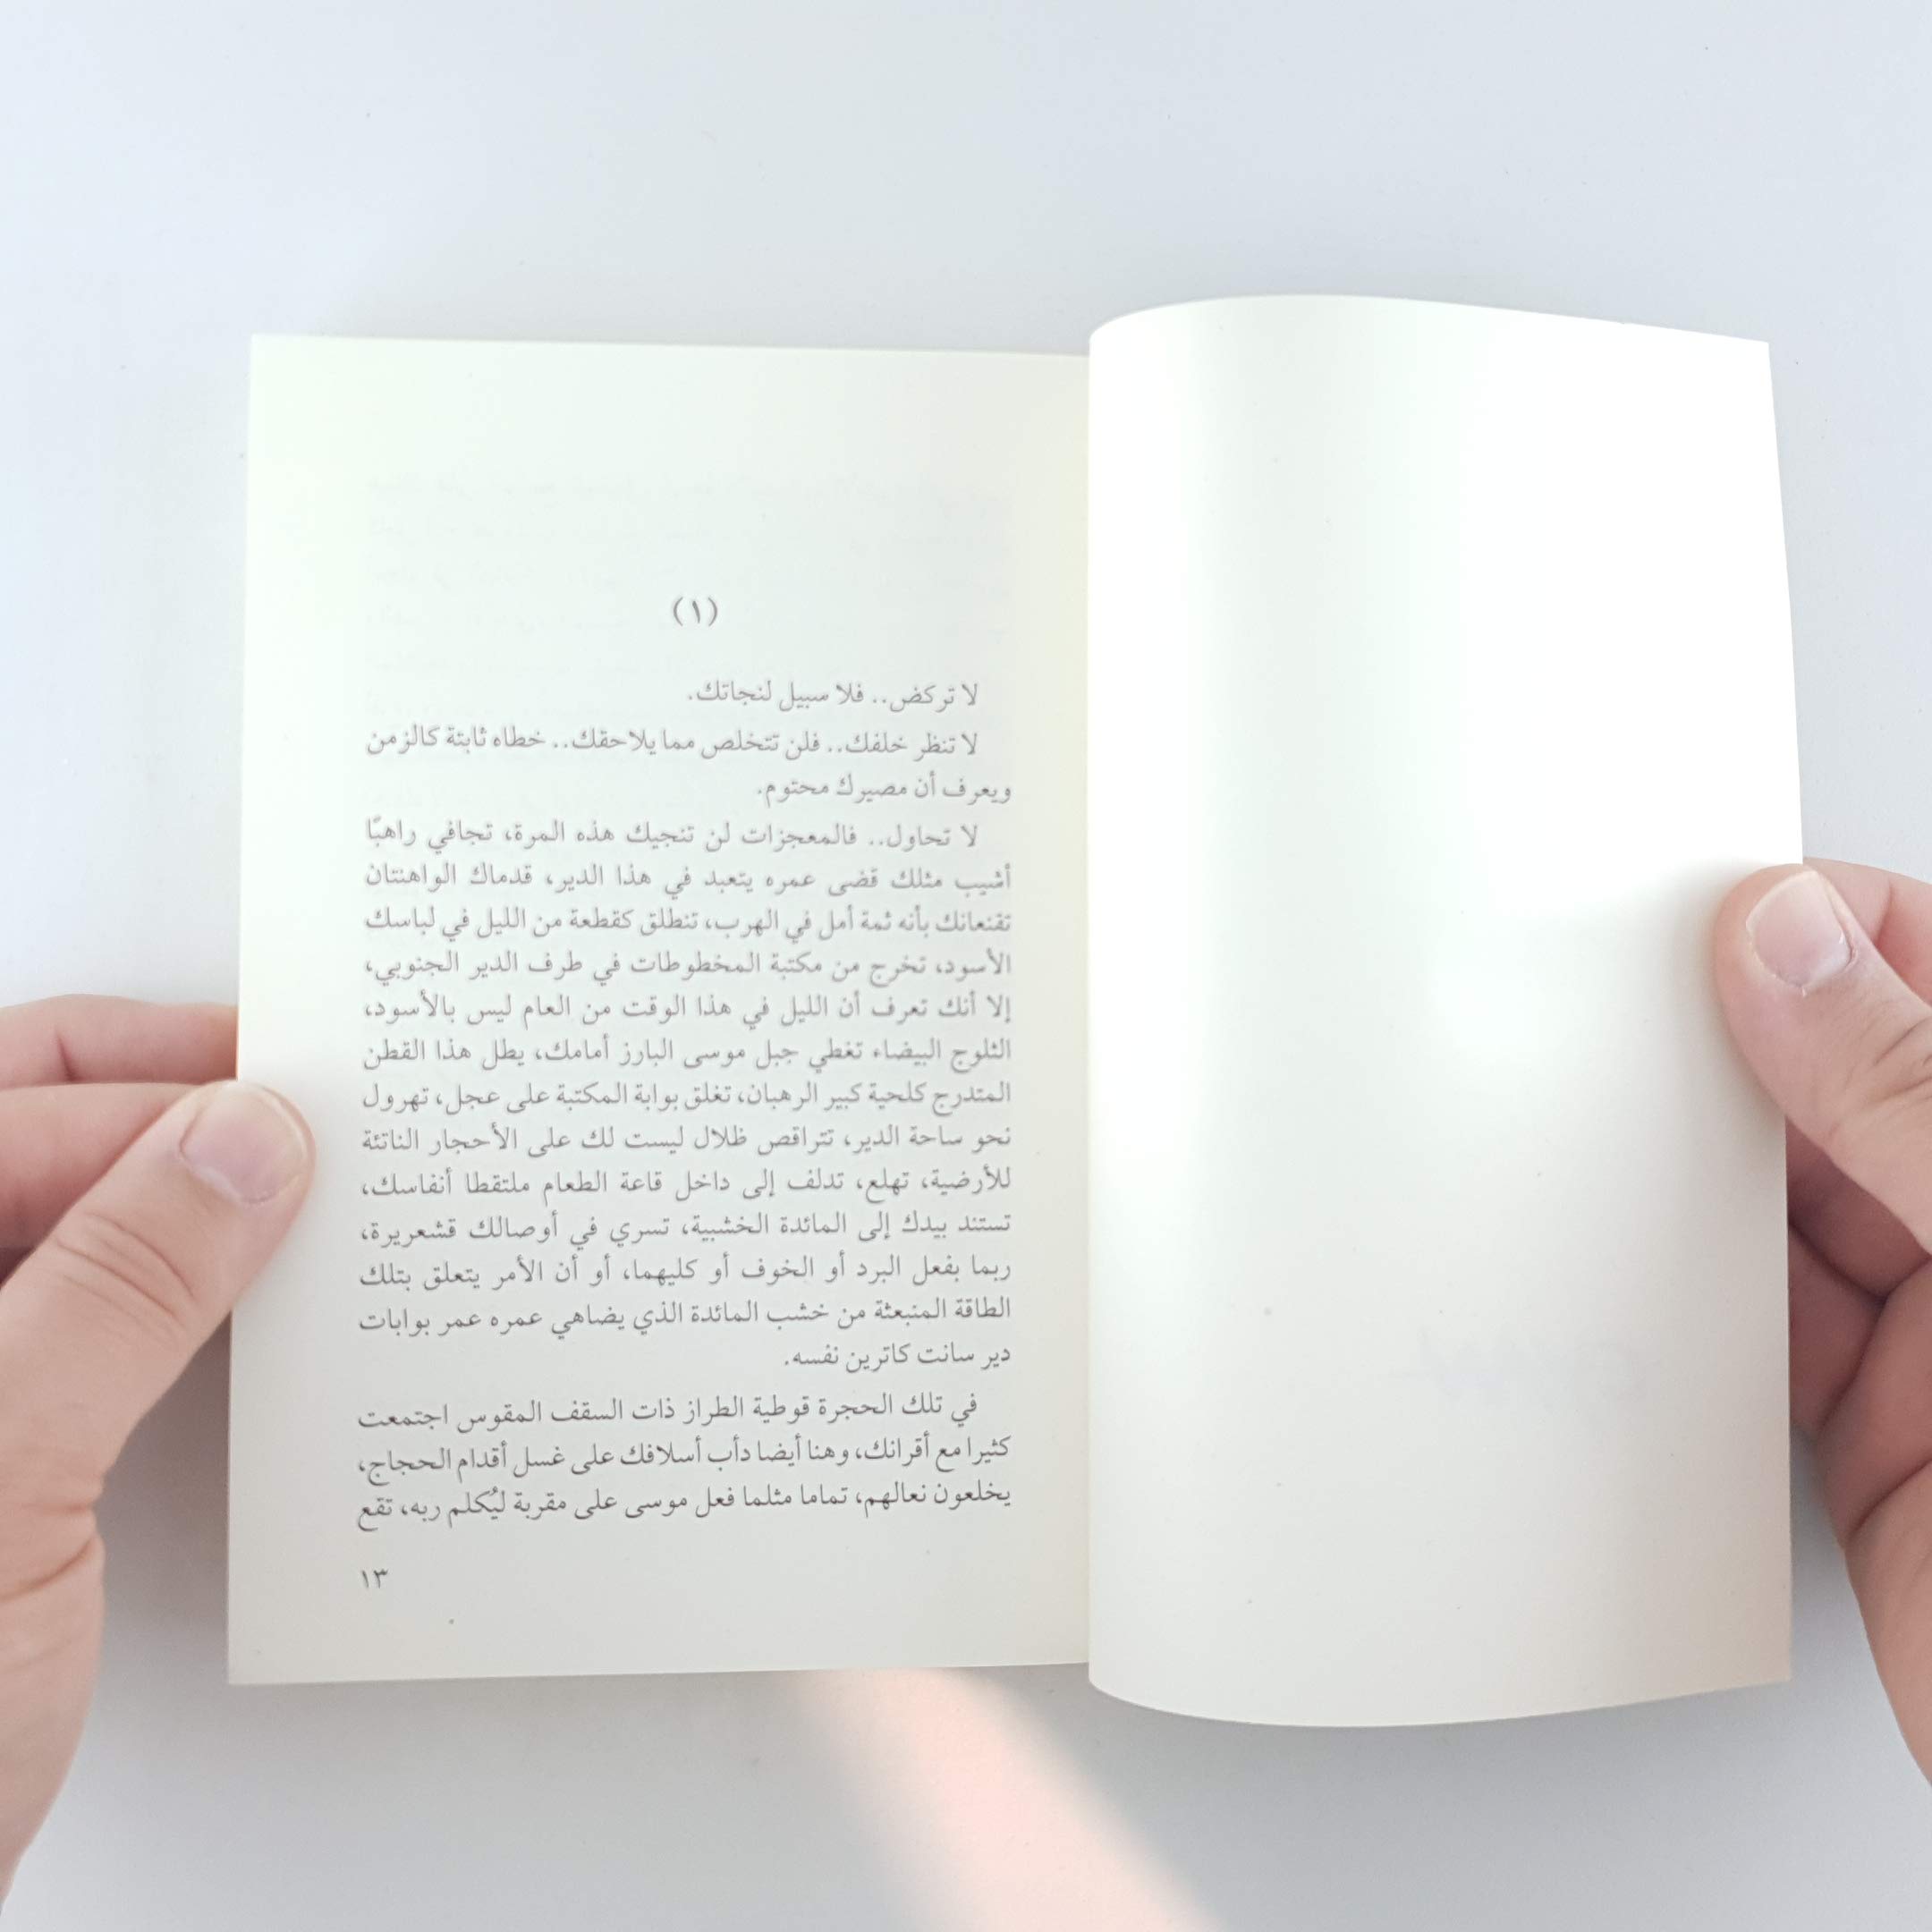 (١)
لا تركض.. فلا سبيل لنجاتك.
لا تنظر خلفك.. فلن تتخلص مما يلاحقك.. خطاه ثابتة كالزمن
ويعرف أن مصيرك محتوم.
لا تحاول.. فالمعجزات لن تنجيك هذه المرة، تجافي راهبًا
أشيب مثلك قضى عمره يتعبد في هذا الدير، قدماك الواهنتان
تقنعانك بأنه ثمة أمل في الهرب، تنطلق كقطعة من الليل في لباسك
الأسود، تخرج من مكتبة المخطوطات في طرف الدير الجنوبي،
إلا أنك تعرف أن الليل في هذا الوقت من العام ليس بالأسود،
الثلوج البيضاء تغطي جبل موسى البارز أمامك، يطل هذا القطن
المتدرج كلحية كبير الرهبان، تغلق بوابة المكتبة على عجل، تهرول
نحو ساحة الدير، تتراقص ظلال ليست لك على الأحجار الناتئة
للأرضية، تهلع، تدلف إلى داخل قاعة الطعام ملتقطا أنفاسك،
تستند بيدك إلى المائدة الخشبية، تسري في أوصالك قشعريرة،
ربما بفعل البرد أو الخوف أو كليهما، أو أن الأمر يتعلق بتلك
الطاقة المنبعثة من خشب المائدة الذي يضاهي عمره عمر بوابات
دير سانت كاترين نفسه.
في تلك الحجرة قوطية الطراز ذات السقف المقوس اجتمعت
كثيرا مع أقرانك، وهنا أيضا دأب أسلافك على غسل أقدام الحجاج،
يخلعون نعالهم، تماما مثلما فعل موسى على مقربة ليُكلم ربه، تقع
١٣